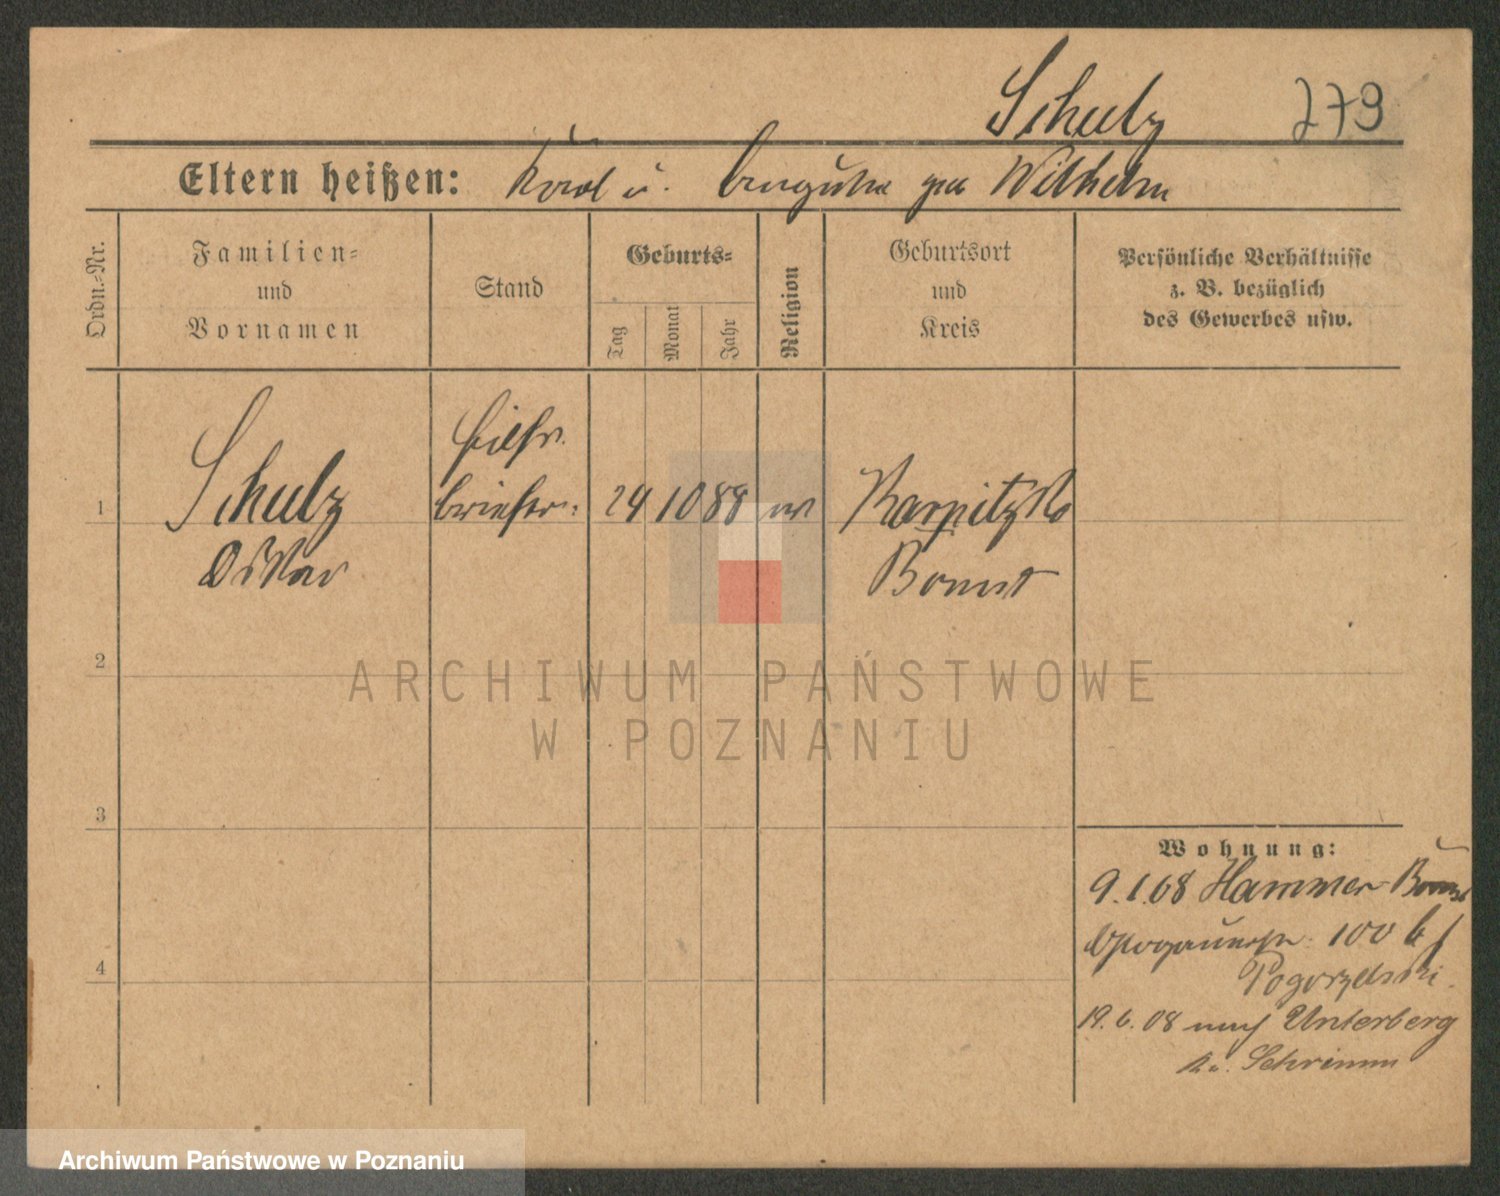 Schulz 279
Eltern heißen: Karl u. Auguste geb Wilhelm
Ordn.-Nr.
Familien-
und
Vornamen
Stand
Geburts-
Tag
Monat
Jahr
Religion
Geburtsort
und
Kreis
Persönliche Verhältnisse
z. B. bezüglich
des Gewerbes usw.
1
Schulz
Oskar
Hilfs
brieftr.
24 10 88 ev
Karpitzko
Bomst
2
ARCHIWUM PAŃSTWOWE
W POZNANIU
3
4
Wohnung:
9.1.08 Hammer Bomst
Glogauerstr. 100 b/
Pogorzelski.
19.6.08 nach Unterberg
Kr. Schrimm
Archiwum Państwowe w Poznaniu